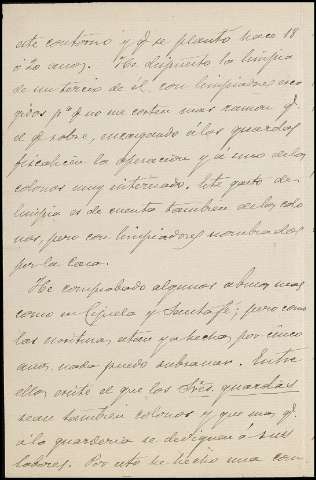 este contorno y qe se plantó hace 18
ó 20 años. He dispuesto la limpia
de un tercio de él, con limpiadores esco
gidos pa q no me corten mas ramon qe
el qe sobre, encargando á los guardas
fiscalicen la operacion y á uno de los
colonos muy interesado. Este gasto de
limpia es de cuenta tambien de los colo
nos, pero con limpiadores nombrados
por la Casa.
He comprobado algunos abusos mas
como en Cijuela y Santafé; pero como
las escrituras, están ya hechas, por cinco
años, nada puedo subsanar. Entre
ellos, existe el que los Sres. guardas
sean tambien colonos y que mas qe
á la guarderia se dediquen á sus
labores. Por esto he hecho una con